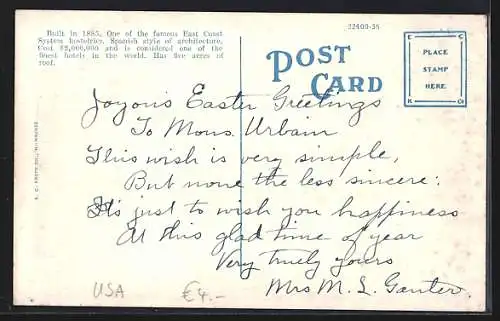 Built in 1885. One of the famous East Coast
System hostelries. Spanish style of architecture.
Cost $2,000,000 and is considered one of the
finest hotels in the world. Has five acres of
roof.
22400-35
POST
CARD
PLACE
STAMP
HERE
Joyous Easter Greetings
To Mons. Urbain
This wish is very simple,
But none the less sincere:
It's just to wish you happiness
At this glad time of year
Very truly yours
Mrs M. L. Ganter.
USA €4.-